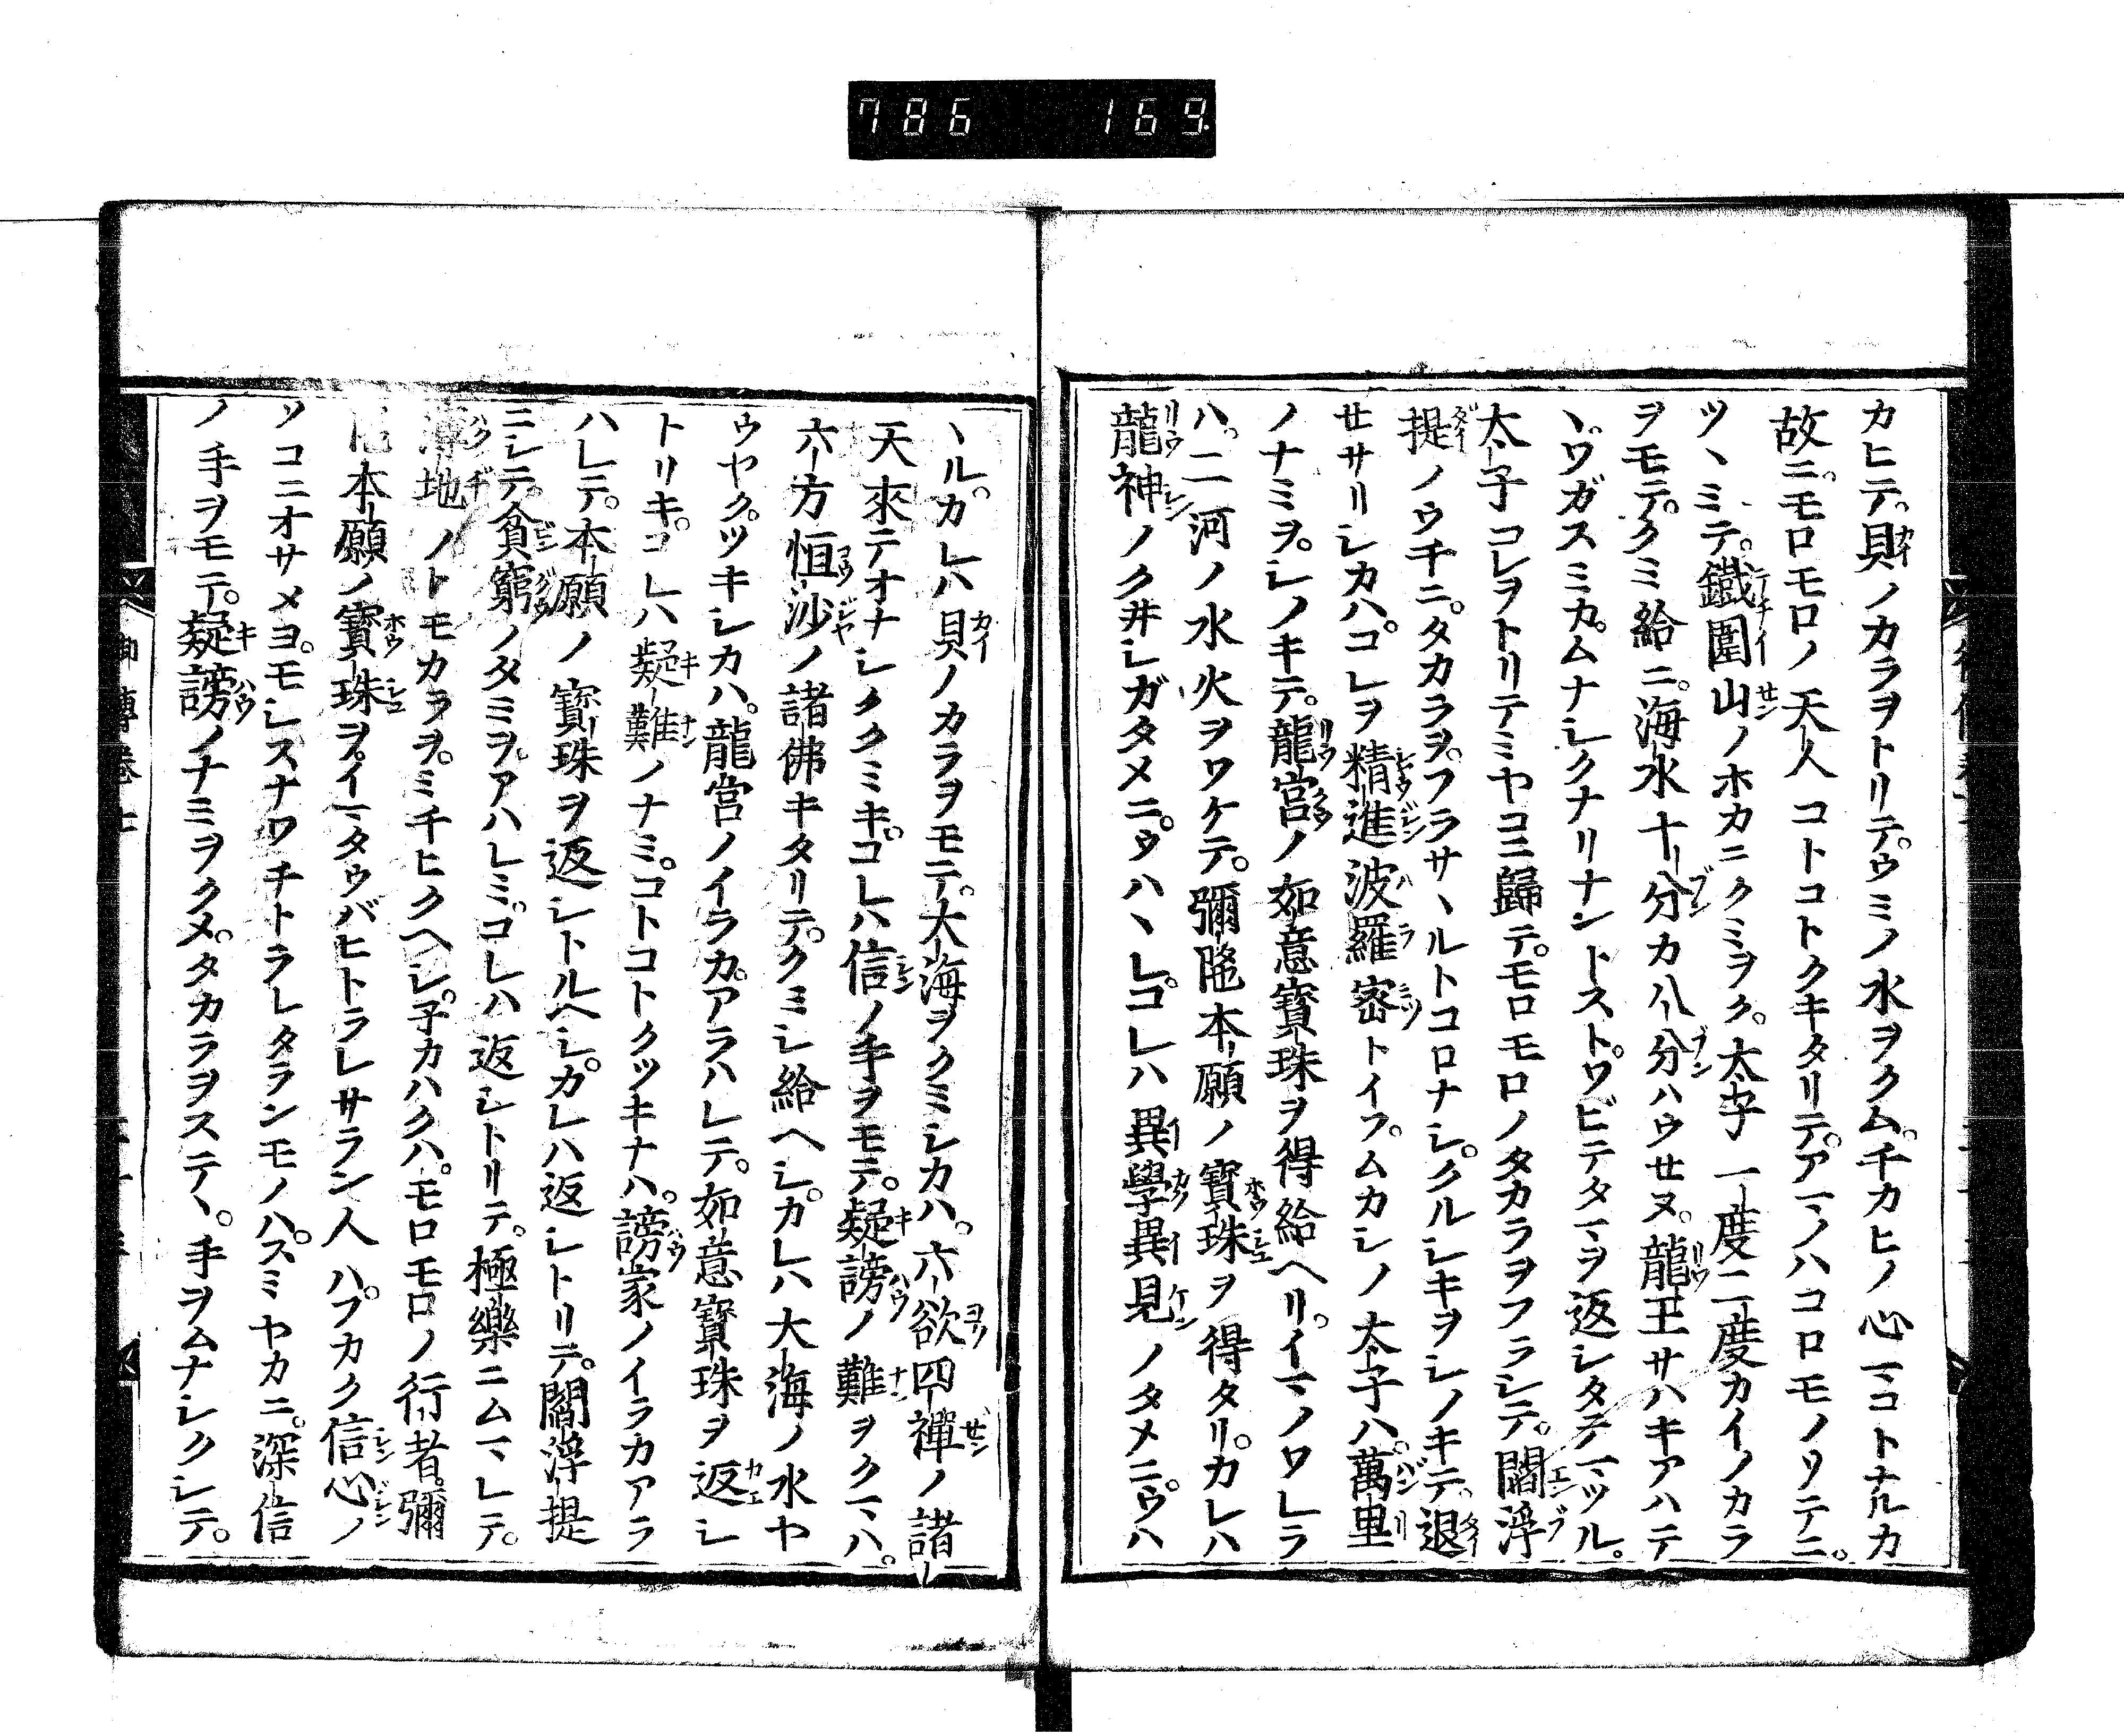 786 169
カヒテ。貝ノカラヲトリテ。ウミノ水ヲクム。チカヒノ心マコトナルカ
故ニ。モロモロノ天人コトコトクキタリテ。アマノハコロモノソテニ。
ツヽミテ。鐵圍山ノホカニクミヲク。太子一度二度カイノカラ
ヲモテ。クミ給ニ。海水十分カ八分ハウセヌ。龍王サハキアハテ
ヽ。ワガスミカ。ムナシクナリナントスト。ワビテタマヲ返シタテマツル。
太子コレヲトリテミヤコニ歸テ。モロモロノタカラヲフラシテ。閻浮
提ノウチニ。タカラヲ。フラサヽルトコロナシ。クルシキヲシノキテ。退
セサリシカハ。コレヲ精進波羅密トイフ。ムカシノ太子ハ。萬里
ノナミヲ。シノキテ。龍宮ノ如意寶珠ヲ得給ヘリ。イマノワレラ
ハ。二河ノ水火ヲワケテ。彌陀本願ノ寶珠ヲ得タリ。カレハ
龍神ノクヰシガタメニ。ウハヽレ。コレハ異學異見ノタメニ。ウハ
ヽル。カレハ貝ノカラヲモテ。大海ヲクミシカハ。六欲四禪ノ諸
天來テオナシククミキ。コレハ信ノ手ヲモテ。疑謗ノ難ヲクマハ。
六方恒沙ノ諸佛キタリテ。クミシ給ヘシ。カレハ大海ノ水ヤ
ウヤクツキシカハ。龍宮ノイラカ。アラハレテ。如意寶珠ヲ返シ
トリキ。コレハ疑難ノナミ。コトコトクツキナハ。謗家ノイラカアラ
ハレテ。本願ノ寶珠ヲ返シトルヘシ。カレハ返シトリテ。閻浮提
ニシテ。貧窮ノタミヲ。アハレミ。コレハ返シトリテ。極樂ニムマレテ。
薄地ノトモカラヲ。ミチヒクヘシ。子カハクハ。モロモロノ行者。彌
陀本願ノ寶珠ヲ。イマタウバヒトラレサラン人ハ。フカク信心ノ
ソコニオサメヨ。モシスナワチトラレタランモノハ。スミヤカニ。深信
ノ手ヲモテ。疑謗ノナミヲクメ。タカラヲステヽ。手ヲムナシクシテ。